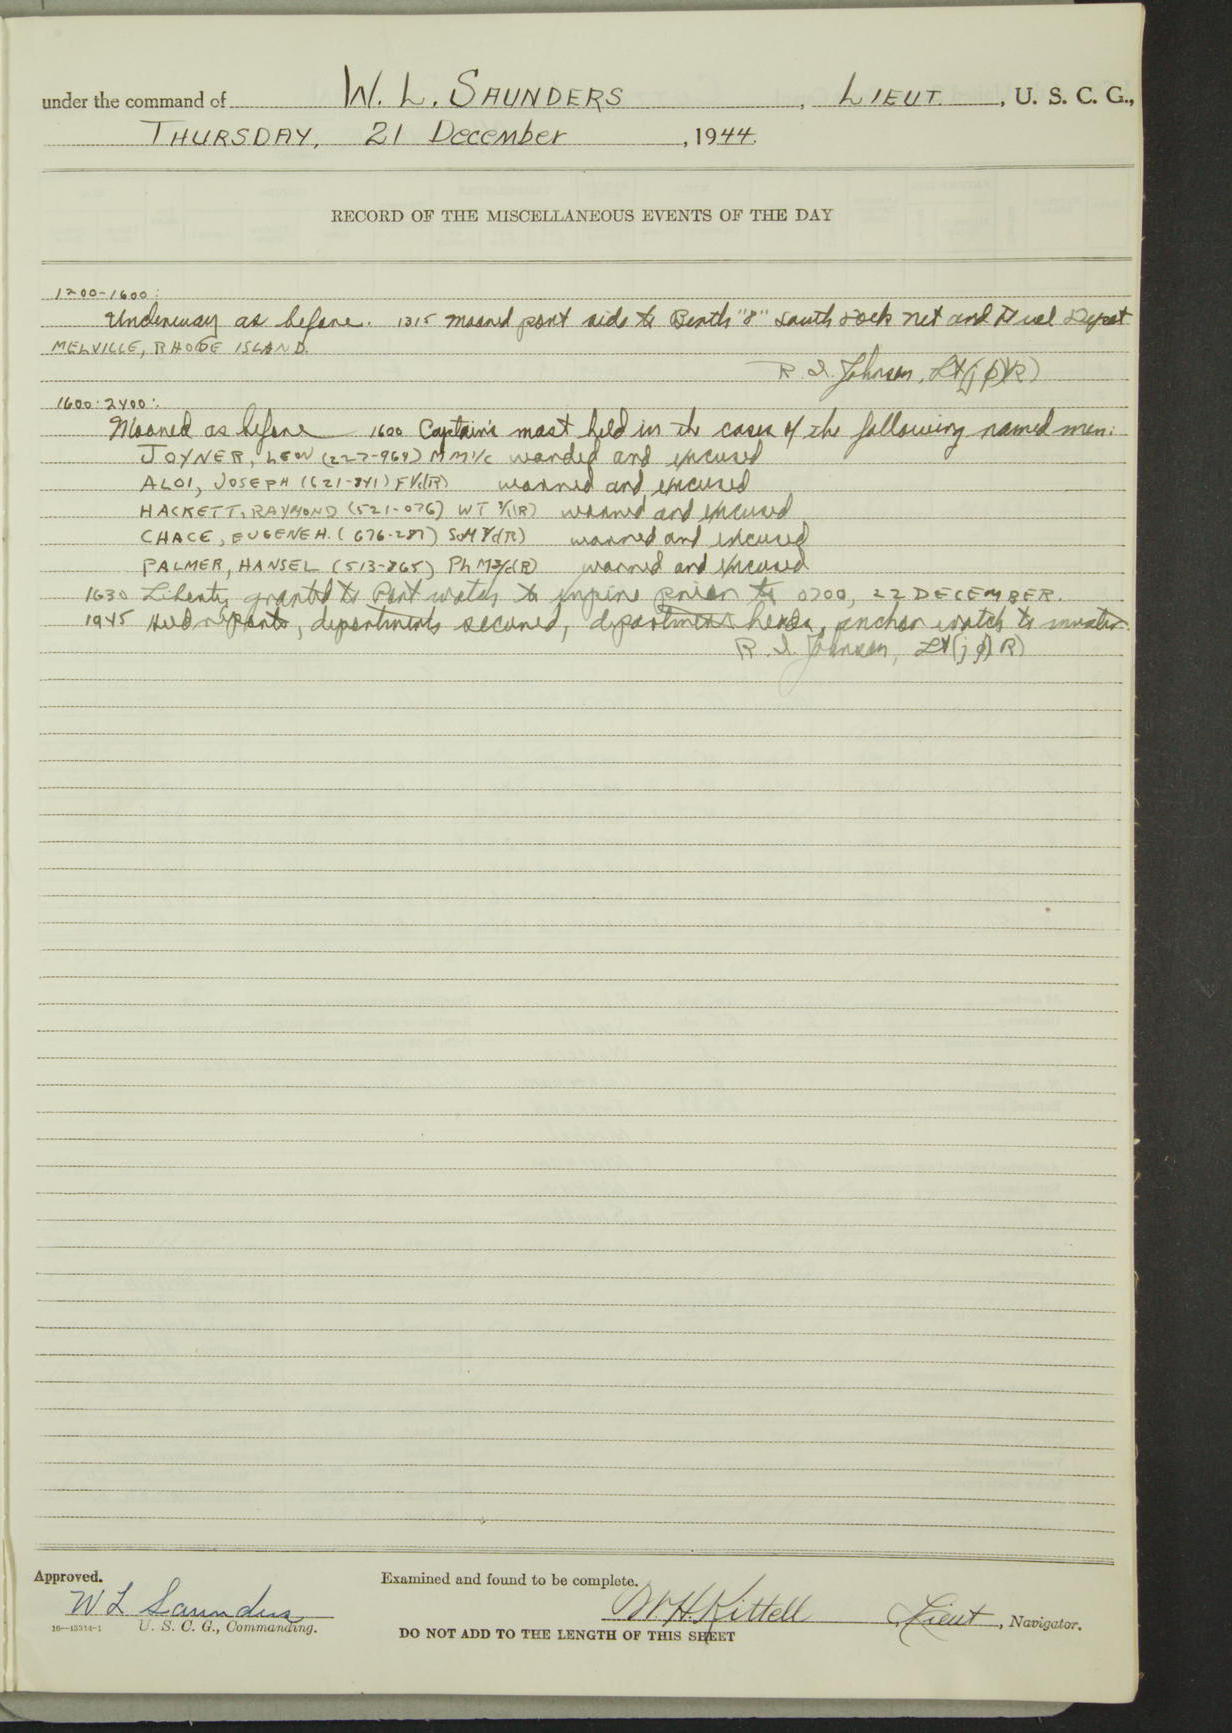 under the command of W. L. SAUNDERS, LIEUT., U. S. C. G.,
THURSDAY, 21 December, 1944.
RECORD OF THE MISCELLANEOUS EVENTS OF THE DAY
1200-1600:
Underway as before. 1315 moored port side to Berth "8" South Dock Net and Fuel Depot
MELVILLE, RHODE ISLAND.
R. I. Johnson, Lt(jg)(R)
1600-2400:
Moored as before 1600 Captain's mast held in the cases of the following named men:
JOYNER, LEON (227-969) MM1/c warned and excused
ALOI, JOSEPH (621-841) F1/c(R) warned and excused
HACKETT, RAYMOND (521-076) WT (R) warned and excused
CHACE, EUGENE H. (676-287) SoM (R) warned and excused
PALMER, HANSEL (513-865) PhM (R) warned and excused
1630 Liberty granted to Port watch to expire prior to 0700, 22 DECEMBER.
1945 Held reports, departments secured, department heads, anchor watch to muster.
R. I. Johnson, Lt(jg)(R)
Approved.
Examined and found to be complete.
W L Saunders
W. H. Kittell Lieut, Navigator.
16—13314-1 U. S. C. G., Commanding.
DO NOT ADD TO THE LENGTH OF THIS SHEET